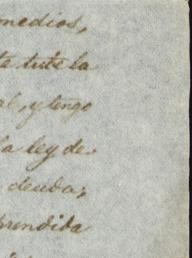 medios,
te tute la
al, y tengo
la ley de
deuda;
prendida